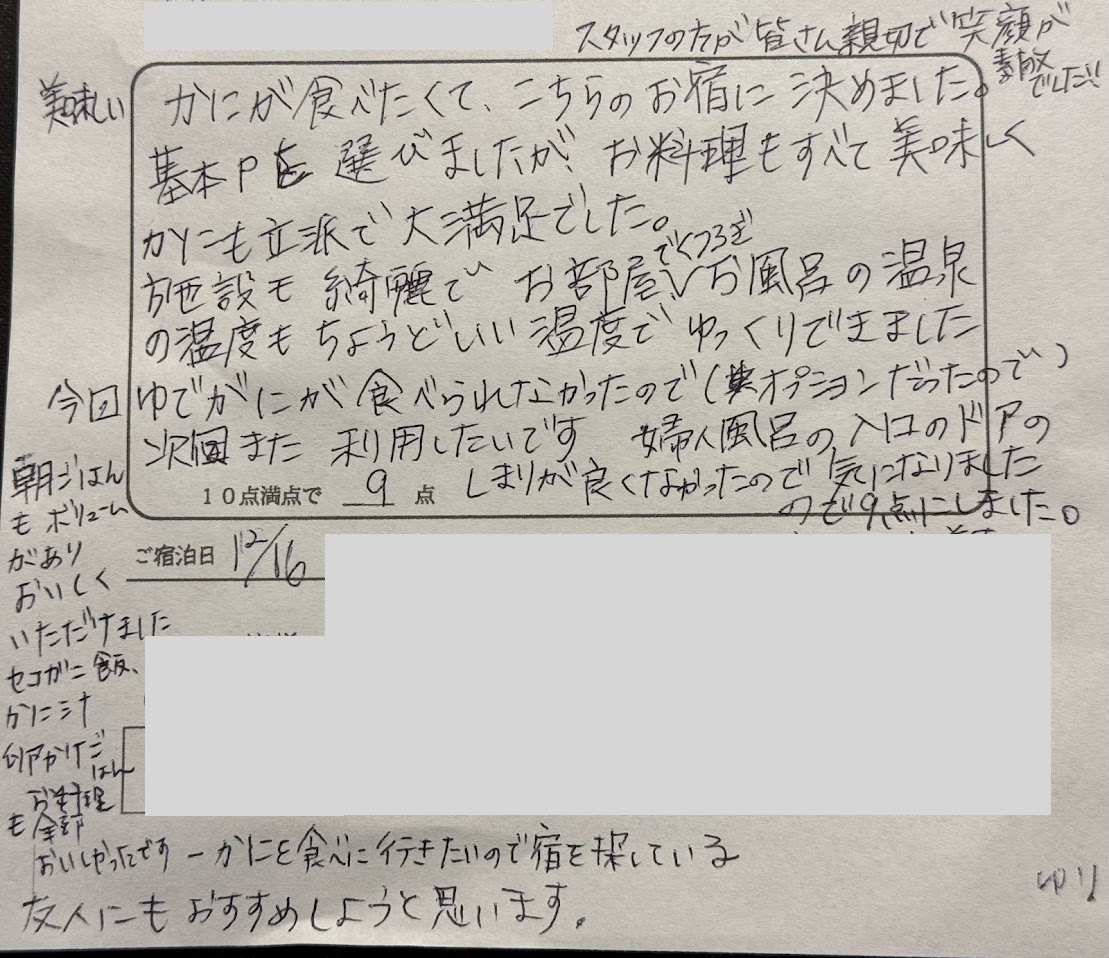 スタッフの方が皆さん親切で笑顔が
素敵
でした!!
美味しい
かにが食べたくて、こちらのお宿に決めました。
基本Pを選びましたが、お料理もすべて美味しく
かにも立派で大満足でした。
施設も綺麗で お部屋でくつろぎお風呂の温泉
の温度もちょうどいい温度でゆっくりできました
今回ゆでがにが食べられなかったので(オプションだったので)
次回また利用したいです 婦人風呂の入口のドアの
しまりが良くなかったので気になりました
ので9点にしました。
10点満点で 9 点
ご宿泊日 12/16
朝ごはん
もボリューム
があり
おいしく
いただけました
セコガニ飯、
かに汁
かけご
はん
お料理
も全部
おいしかったです
かにを食べに行きたいので宿を探している
友人にもおすすめしようと思います。
ゆり